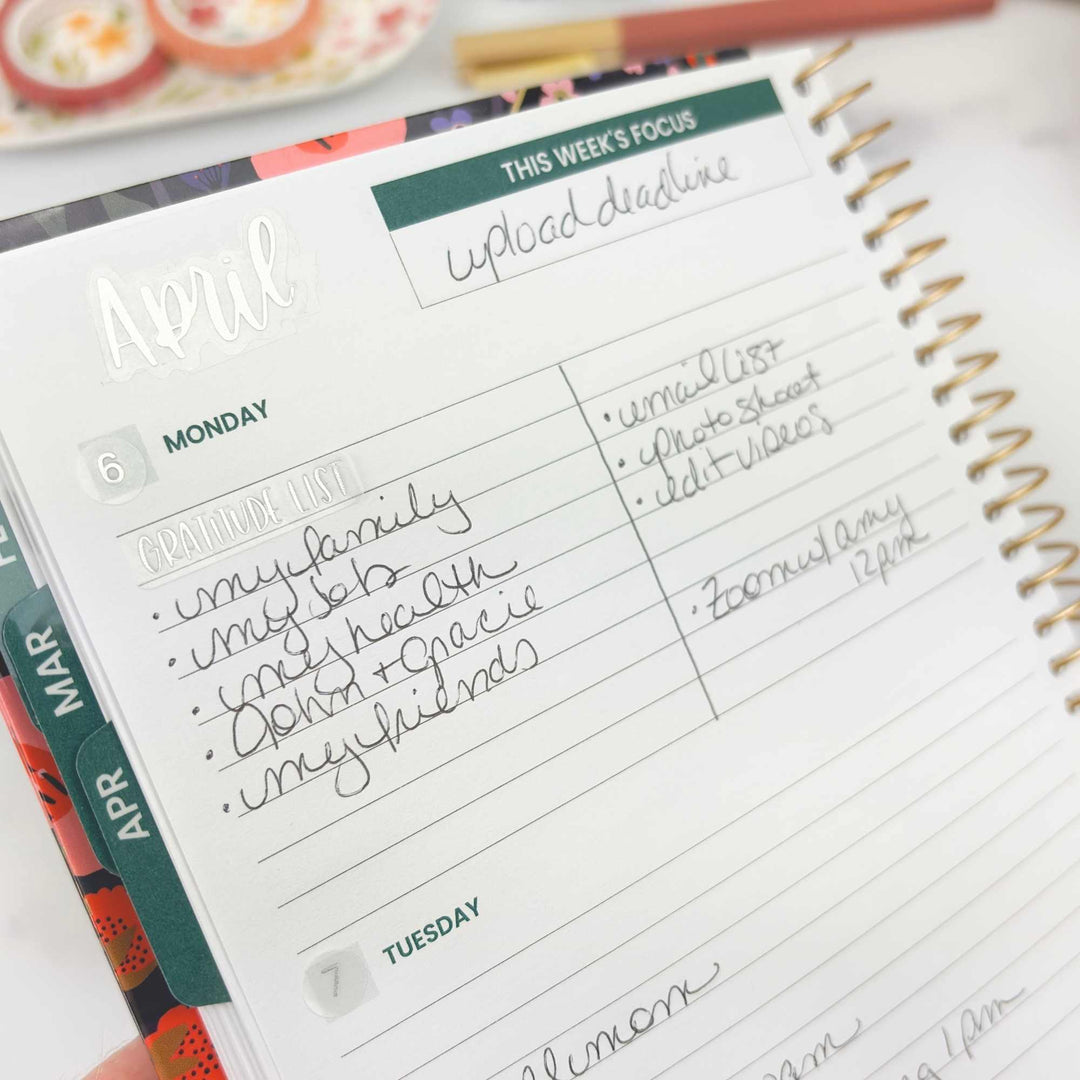 THIS WEEK'S FOCUS
upload deadline
April
MONDAY
6
GRATITUDE LIST
• my family
• my job
• my health
• John + Gracie
• my friends
• email list
• photo shoot
• edit videos
• Zoom w/ amy
12pm
MAR
APR
TUESDAY
7
1pm